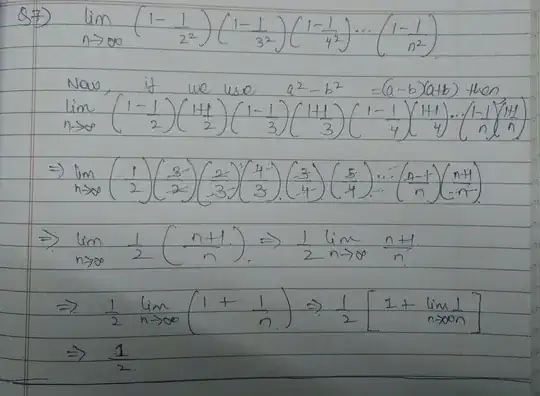 Q7) lim n→∞ (1 - 1/2²) (1 - 1/3²) (1 - 1/4²) ... (1 - 1/n²)
Now, if we use a² - b² = (a-b)(a+b) then
lim n→∞ (1 - 1/2) (1+1/2) (1 - 1/3) (1+1/3) (1 - 1/4) (1+1/4) ... (1 - 1/n) (1+1/n)
⇒ lim n→∞ (1/2) (3/2) (2/3) (4/3) (3/4) (5/4) ... (n-1/n) (n+1/n)
⇒ lim n→∞ 1/2 (n+1/n) ⇒ 1/2 lim n→∞ n+1/n
⇒ 1/2 lim n→∞ (1 + 1/n) ⇒ 1/2 [1 + lim n→∞ 1/n]
⇒ 1/2